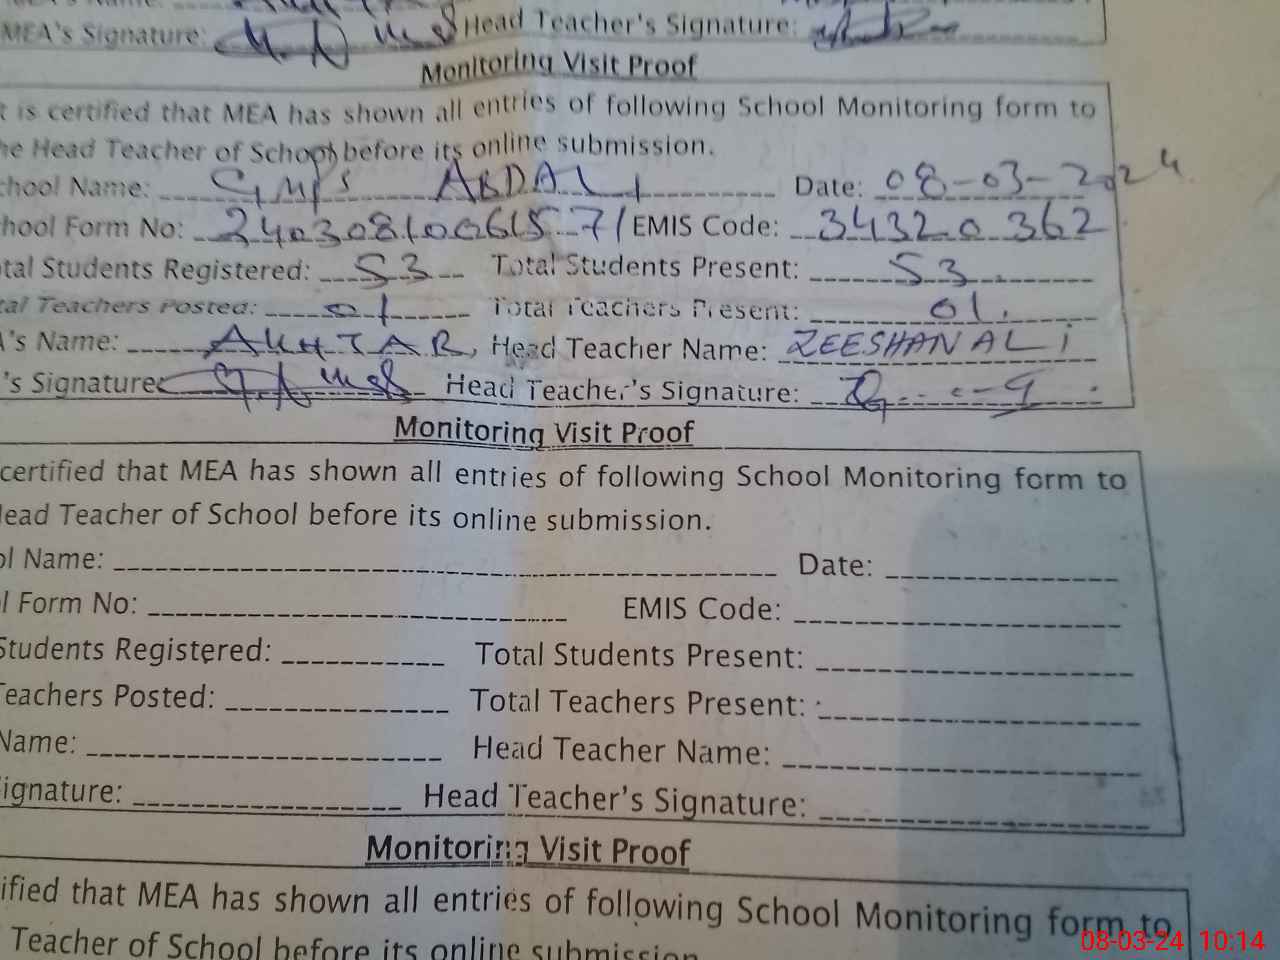 MEA's Signature: Head Teacher's Signature:
Monitoring Visit Proof
t is certified that MEA has shown all entries of following School Monitoring form to
he Head Teacher of School before its online submission.
chool Name: GMPS ABDAL Date: 08-03-2024
hool Form No: EMIS Code: 34320362
otal Students Registered: 53 Total Students Present: 53
tal Teachers Posted: 01 Total Teachers Present: 01
A's Name: AKHTAR, Head Teacher Name: ZEESHAN ALI
's Signature: Head Teacher's Signature:
Monitoring Visit Proof
certified that MEA has shown all entries of following School Monitoring form to
Head Teacher of School before its online submission.
ol Name: Date:
l Form No: EMIS Code:
Students Registered: Total Students Present:
Teachers Posted: Total Teachers Present:
Name: Head Teacher Name:
ignature: Head Teacher's Signature:
Monitoring Visit Proof
ified that MEA has shown all entries of following School Monitoring form to
Teacher of School before its online submission
08-03-24 10:14